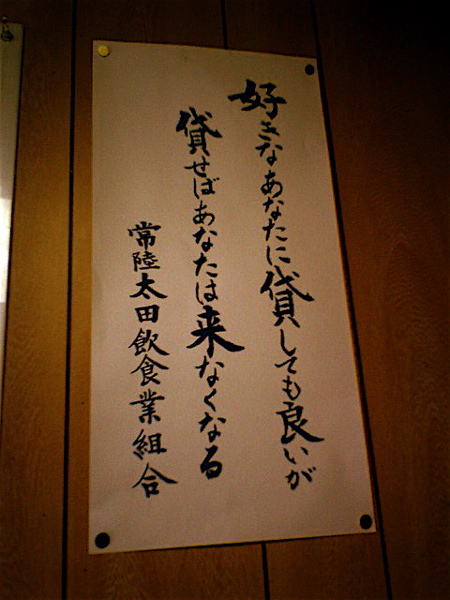 好きなあなたに貸しても良いが
貸せばあなたは来なくなる
常陸太田飲食業組合